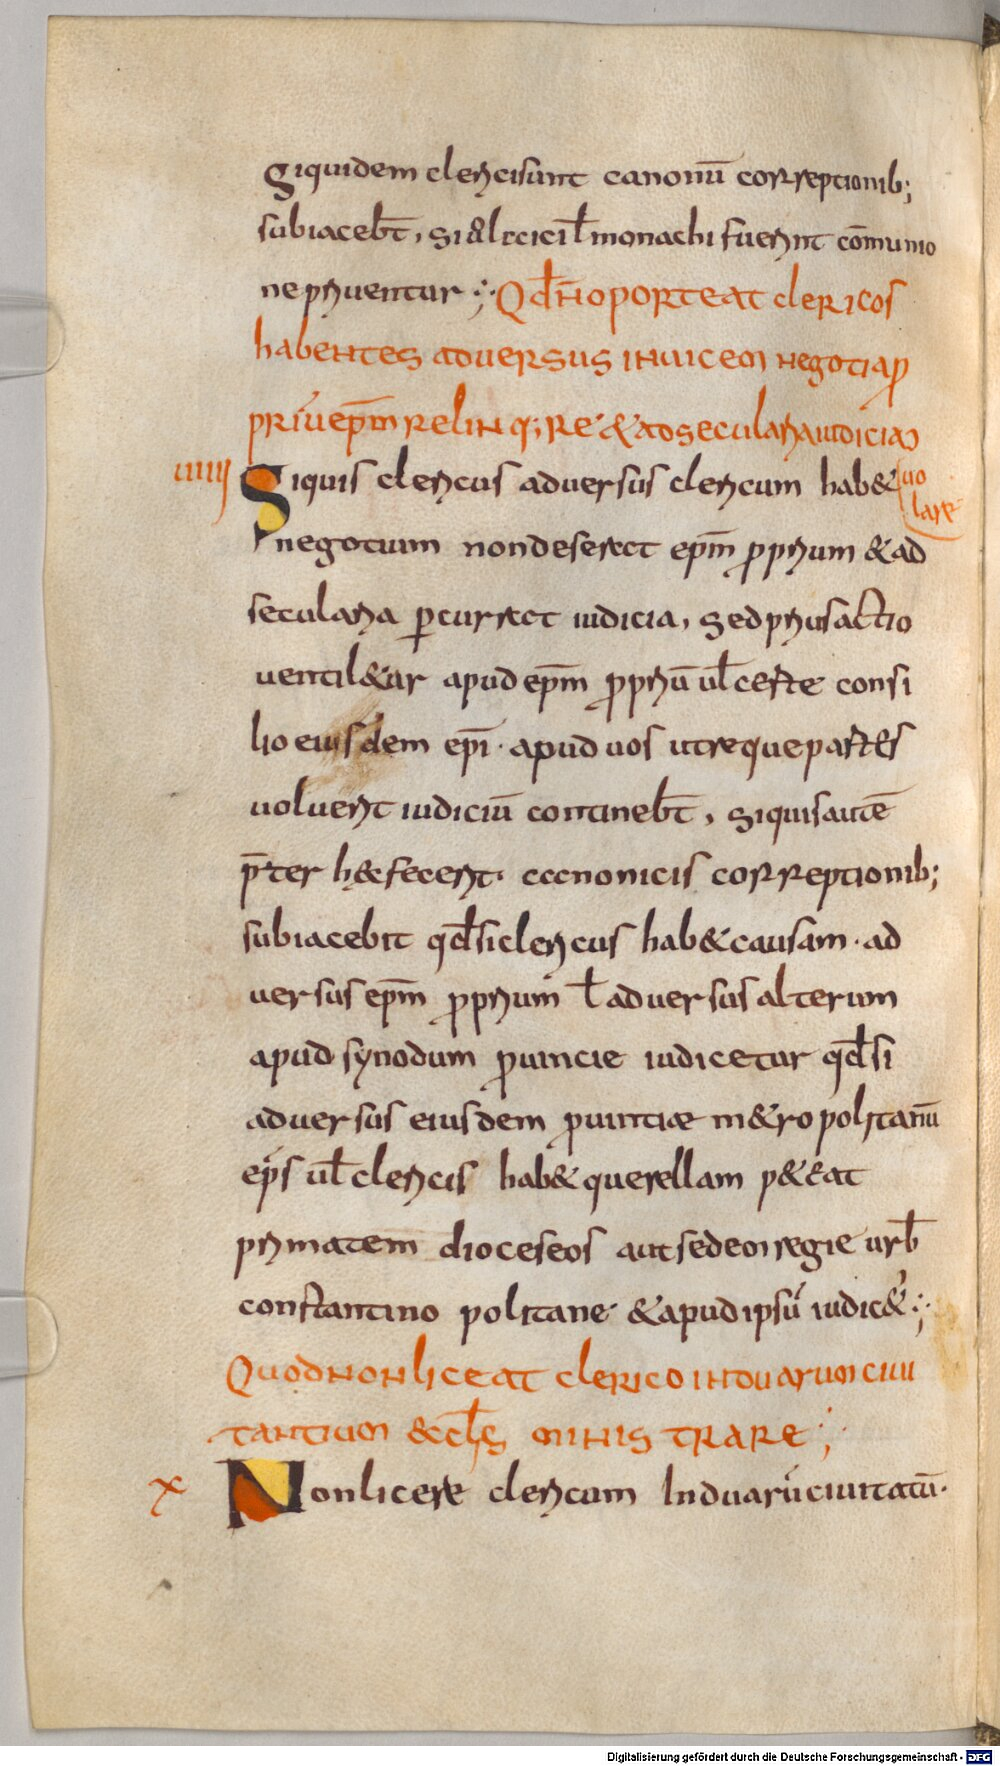 Siquidem clerici sunt canonū correptionib;
subiacebt̄, si laici ul̄ monachi fuerint cōmunio
ne priuentur :· Qd̄ n̄ oporteat clericos
habentes aduersus inuicem negotia ꝓ
priū ep̄m relinq;re & ad secularia iudicia
uiiii Siquis clericus aduersus clericum hab& uo
lare
negotium non deserat ep̄m ꝓprium & ad
secularia ꝑcurrat iudicia, sed prius actio
uentil&ur apud ep̄m ꝓpriū ul̄ certe consi
lio eiusdem ep̄i · apud uos utreque partes
uoluerint iudiciū continebt̄, siquis autē
p̄ter h& fecerit · canonicis correptionib;
subiacebit qd̄ si clericus hab& causam · ad
uersus ep̄m ꝓprium ł aduersus alterum
apud synodum ꝓuincie iudicetur qd̄ si
aduersus eiusdem ꝓuintiæ m&ropolitanū
ep̄s ul̄ clericis hab& querellam p&at
primatem dioceseos aut sedem regie urb̄
constantinopolitane & apud ipsū iudic& :·
Quod non liceat clerico in duarum ciui
tantium &cl̄s ministrare ;
x Non licere clericum In duarū ciuitatū·
Digitalisierung gefördert durch die Deutsche Forschungsgemeinschaft - DFG